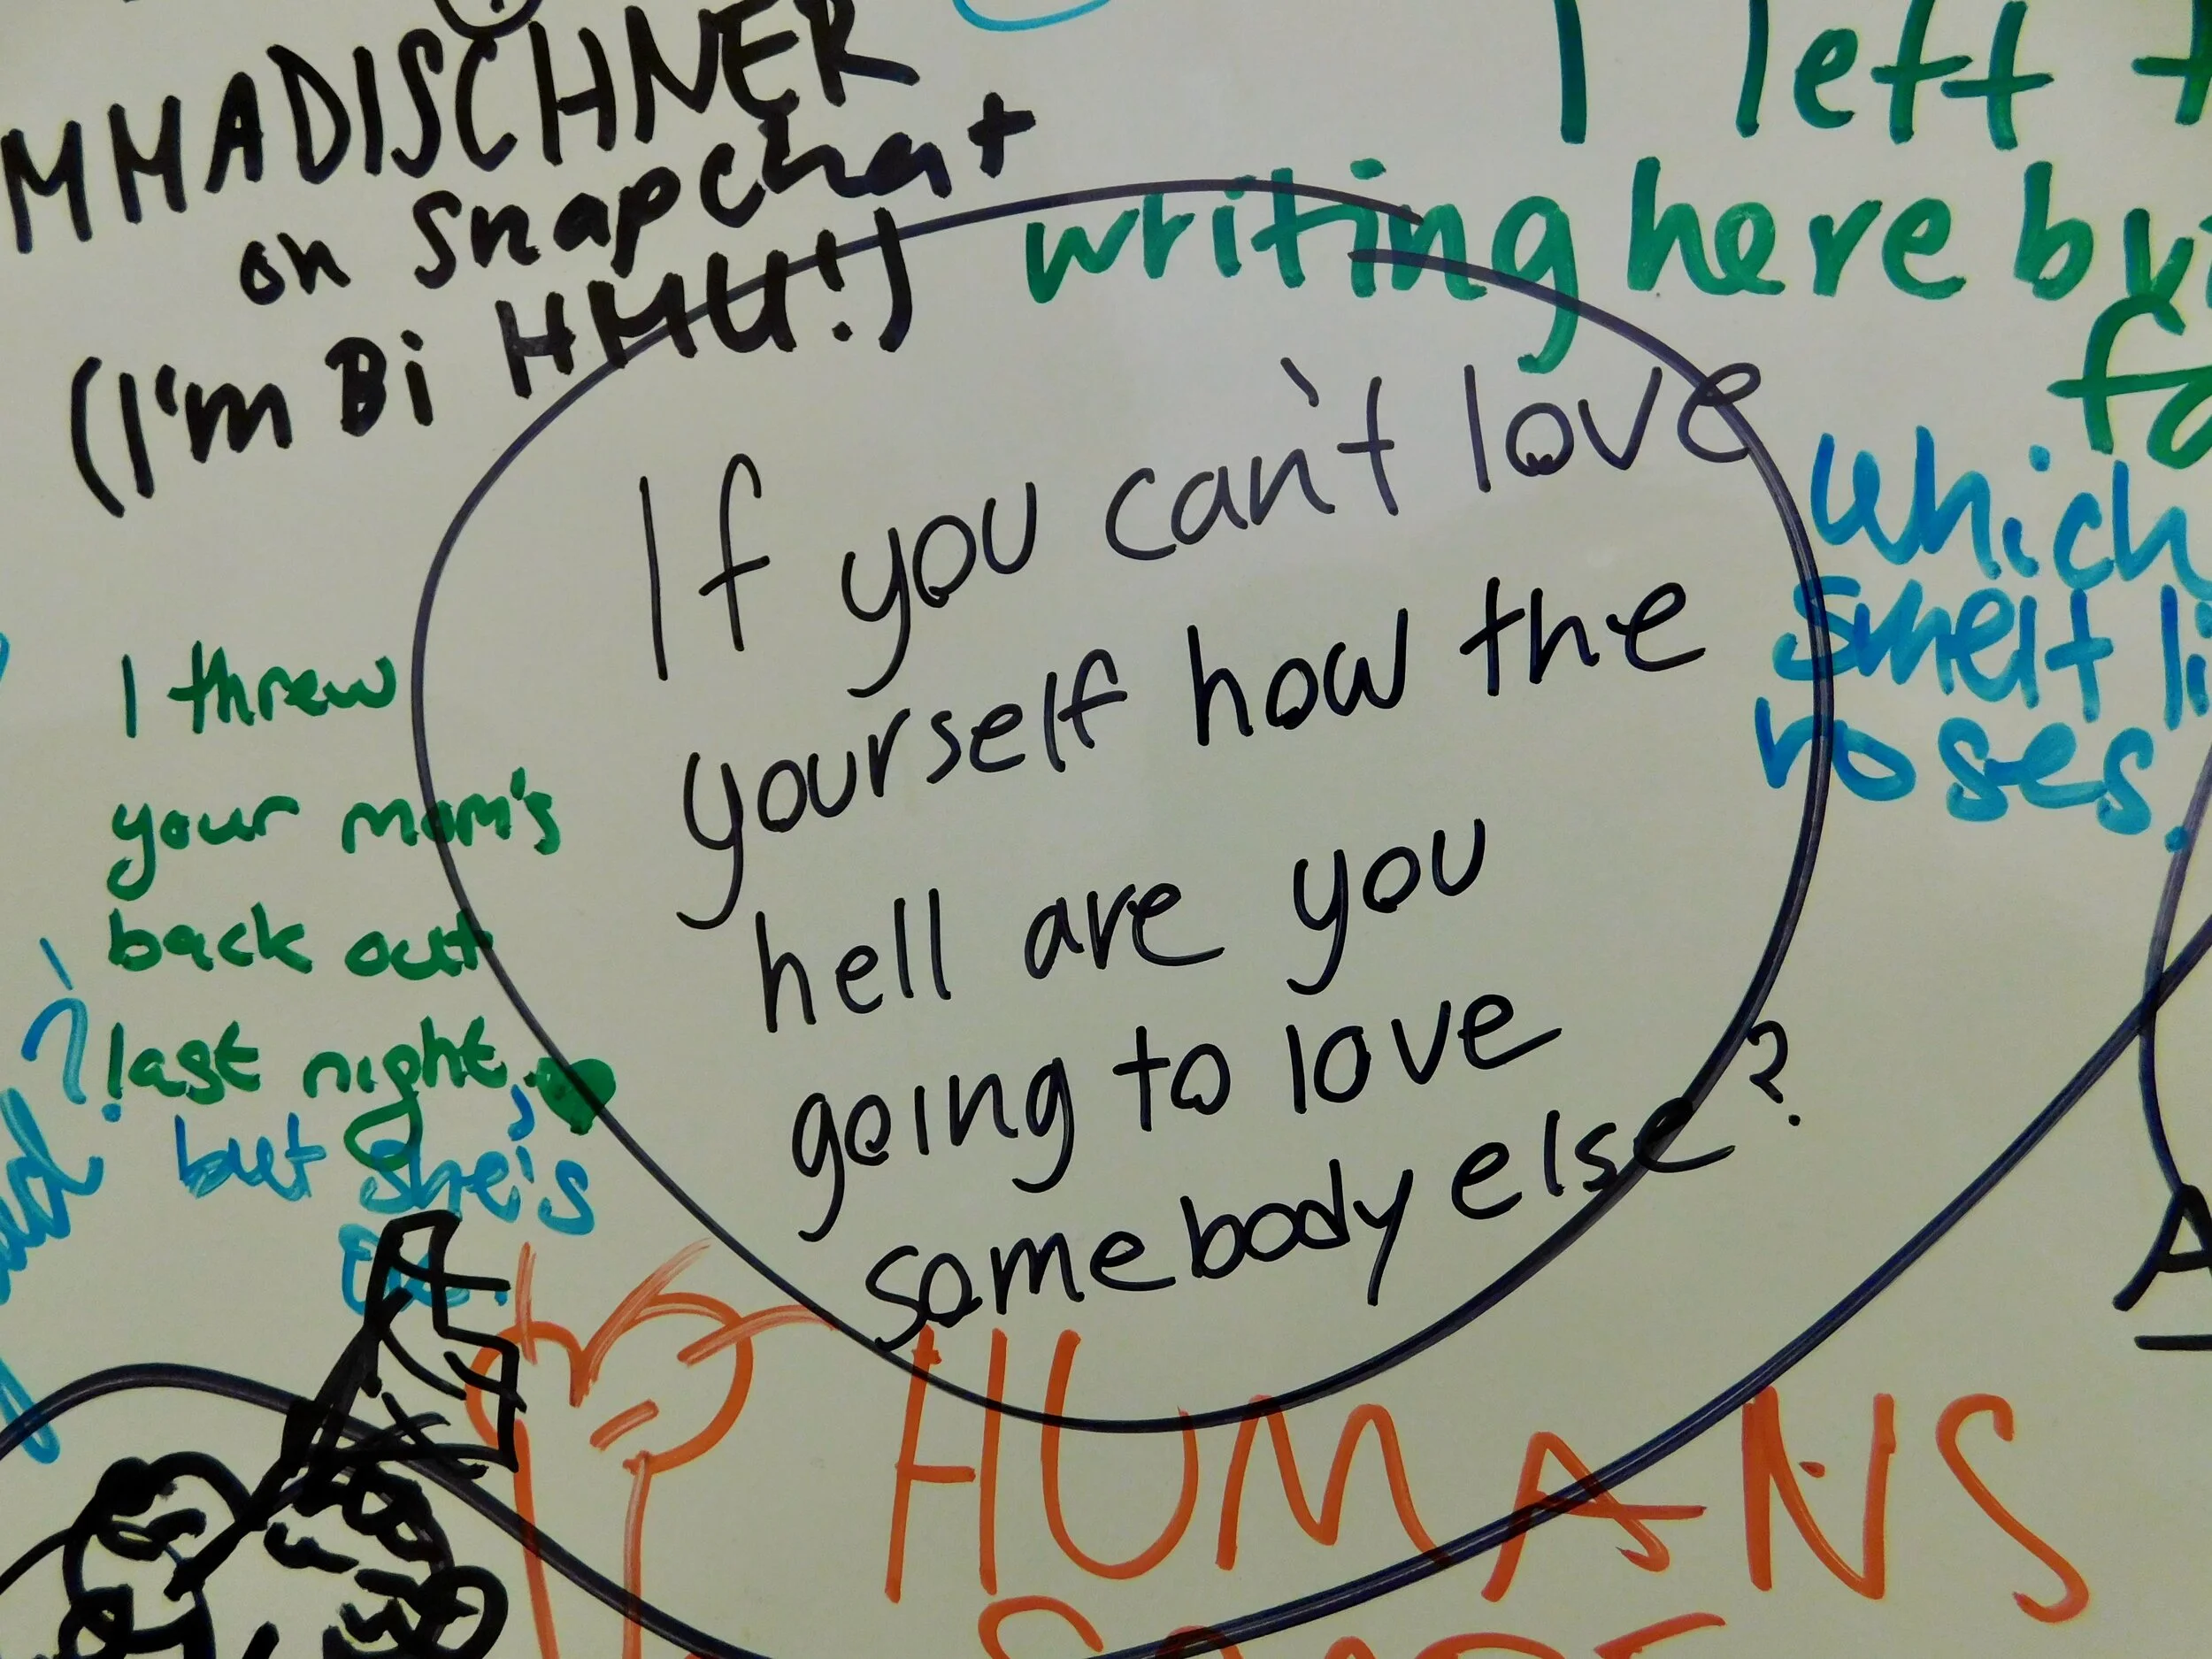 MMADISCHNER
on snapchat
(I'm Bi HMU!)
I left
writing here
which
smelt
roses.
If you can't love
yourself how the
hell are you
going to love
somebody else?
I threw
your mom's
back out
last night.
but she's
HUMANS